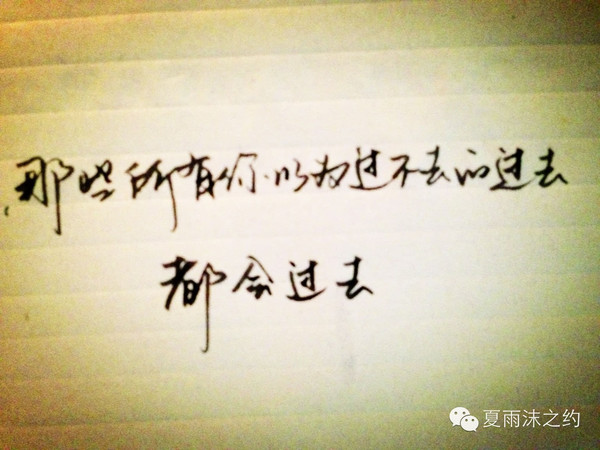 那些所有你以为过不去的过去
都会过去
夏雨沫之约